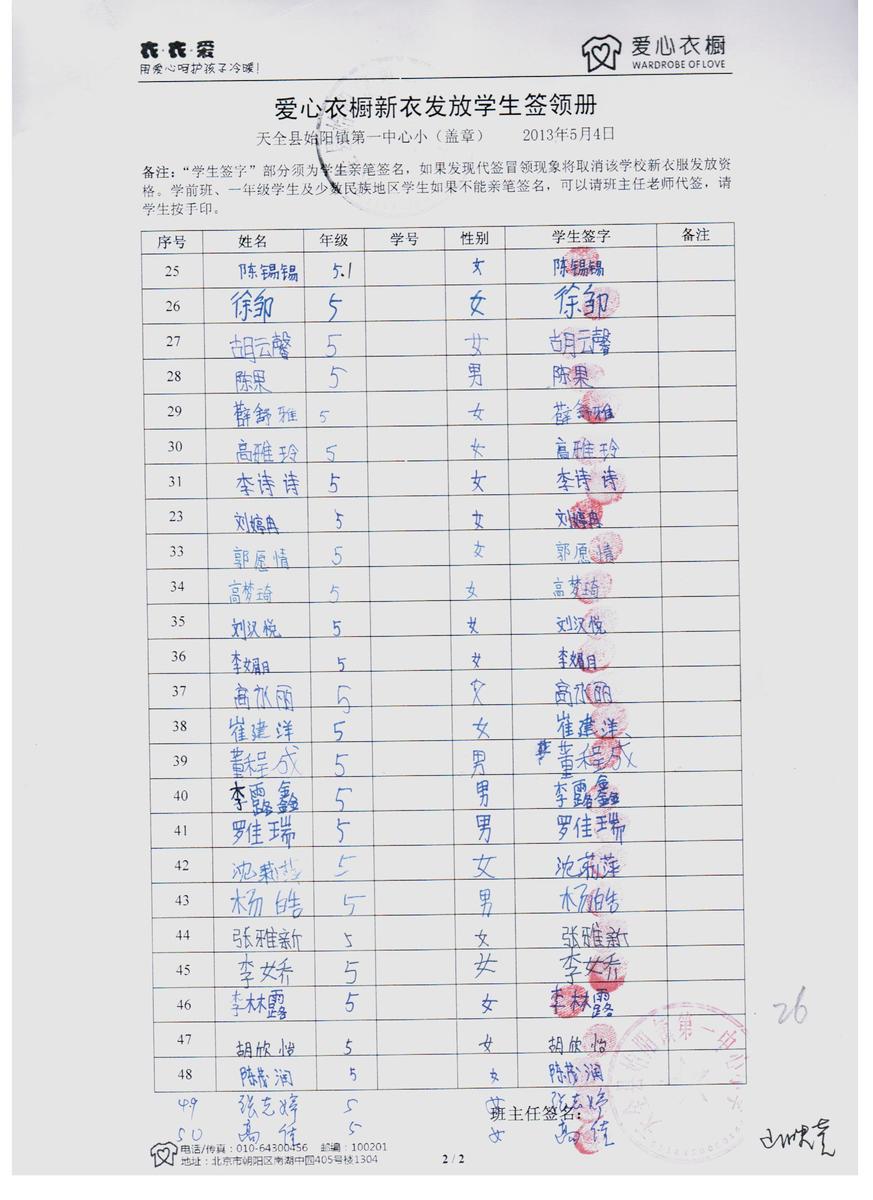 衣·衣·爱
用爱心呵护孩子冷暖!
爱心衣橱
WARDROBE OF LOVE
爱心衣橱新衣发放学生签领册
天全县始阳镇第一中心小（盖章） 2013年5月4日
备注：“学生签字”部分须为学生亲笔签名，如果发现代签冒领现象将取消该学校新衣服发放资
格。学前班、一年级学生及少数民族地区学生如果不能亲笔签名，可以请班主任老师代签，请
学生按手印。
序号 姓名 年级 学号 性别 学生签字 备注
25 陈锡锡 5.1 女 陈锡锡
26 徐邹 5 女 徐邹
27 胡云馨 5 女 胡云馨
28 陈果 5 男 陈果
29 薛舒雅 5 女 薛舒雅
30 高雅玲 5 女 高雅玲
31 李诗诗 5 女 李诗诗
23 刘婷冉 5 女 刘婷冉
33 郭愿情 5 女 郭愿情
34 高梦琦 5 女 高梦琦
35 刘汉悦 5 女 刘汉悦
36 李娟 5 女 李娟
37 高水丽 5 女 高水丽
38 崔建洋 5 女 崔建洋
39 董程成 5 男 董程成
40 李露鑫 5 男 李露鑫
41 罗佳瑞 5 男 罗佳瑞
42 沈莉萍 5 女 沈莉萍
43 杨皓 5 男 杨皓
44 张雅新 5 女 张雅新
45 李娇 5 女 李娇
46 李林露 5 女 李林露
47 胡欣怡 5 女 胡欣怡
48 陈茂润 5 女 陈茂润
49 张志婷 5 女 张志婷
50 高佳 5 女 高佳
班主任签名：
26
电话/传真：010-64300456 邮编：100201
地址：北京市朝阳区南湖中园405号楼1304
2 / 2